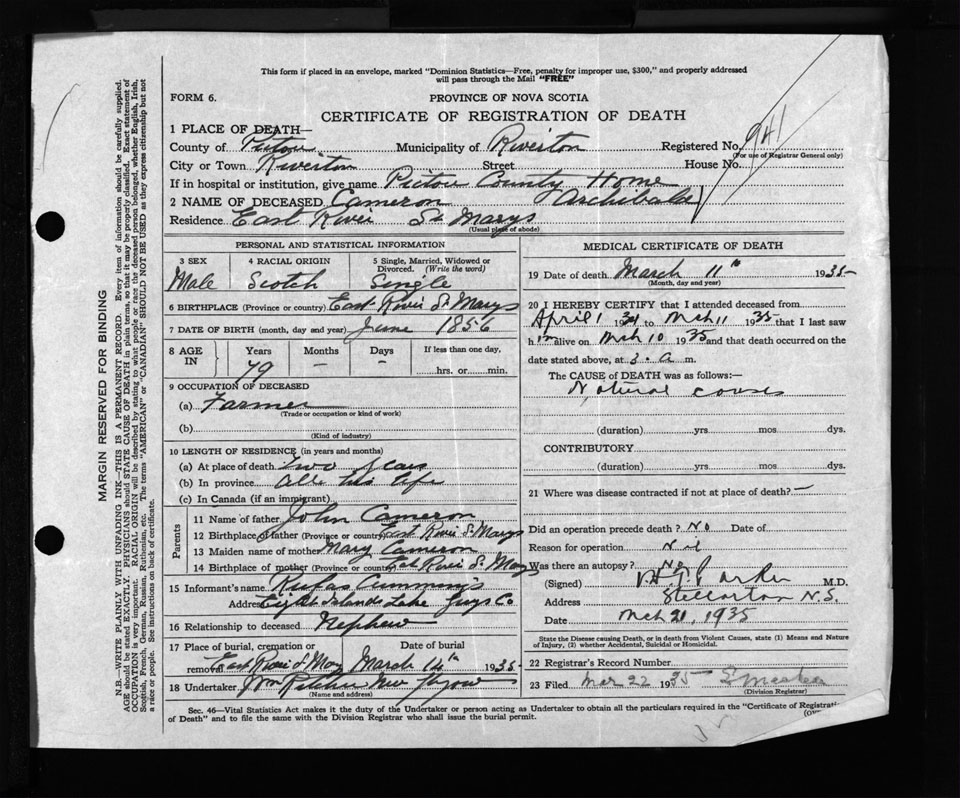 This form if placed in an envelope, marked "Dominion Statistics—Free, penalty for improper use, $300," and properly addressed
will pass through the Mail "FREE"
FORM 6.
PROVINCE OF NOVA SCOTIA
CERTIFICATE OF REGISTRATION OF DEATH
1 PLACE OF DEATH—
County of Pictou Municipality of Riverton Registered No. 941
(For use of Registrar General only)
City or Town Riverton Street House No.
If in hospital or institution, give name Pictou County Home
2 NAME OF DECEASED Cameron Archibald
Residence East River St Marys
(Usual place of abode)
PERSONAL AND STATISTICAL INFORMATION
3 SEX 4 RACIAL ORIGIN 5 Single, Married, Widowed or
Divorced. (Write the word)
Male Scotch Single
6 BIRTHPLACE (Province or country) East River St Marys
7 DATE OF BIRTH (month, day and year) June 1856
8 AGE IN Years Months Days If less than one day,
79 — — hrs. or min.
9 OCCUPATION OF DECEASED
(a) Farmer
(Trade or occupation or kind of work)
(b)
(Kind of industry)
10 LENGTH OF RESIDENCE (in years and months)
(a) At place of death two years
(b) In province all his life
(c) In Canada (if an immigrant)
Parents
11 Name of father John Cameron
12 Birthplace of father (Province or country) East River St Marys
13 Maiden name of mother Mary Cameron
14 Birthplace of mother (Province or country) East River St Marys
15 Informant's name Rufas Cummings
Address Eight Islands Lake Guys Co
16 Relationship to deceased Nephew
17 Place of burial, cremation or Date of burial
removal East River St Mary March 14th 1935
18 Undertaker Wm New
(Name and address)
MEDICAL CERTIFICATE OF DEATH
19 Date of death March 11th 1935
(Month, day and year)
20 I HEREBY CERTIFY that I attended deceased from
April 1 1934 to Mch 11 1935 that I last saw
him alive on Mch 10 1935 and that death occurred on the
date stated above, at 3. a m.
The CAUSE OF DEATH was as follows:—
Natural causes
(duration) yrs. mos. dys.
CONTRIBUTORY
(duration) yrs. mos. dys.
21 Where was disease contracted if not at place of death? —
Did an operation precede death? No Date of
Reason for operation Nil
Was there an autopsy? No
(Signed) Parker M.D.
Address Stellarton N.S.
Date Mch 21, 1935
State the Disease causing Death, or in death from Violent Causes, state (1) Means and Nature
of Injury, (2) whether Accidental, Suicidal or Homicidal.
22 Registrar's Record Number
23 Filed Mar 22 1935
(Division Registrar)
Sec. 46—Vital Statistics Act makes it the duty of the Undertaker or person acting as Undertaker to obtain all the particulars required in the "Certificate of Registration
of Death" and to file the same with the Division Registrar who shall issue the burial permit.
MARGIN RESERVED FOR BINDING
N.B.—WRITE PLAINLY WITH UNFADING INK—THIS IS A PERMANENT RECORD. Every item of information should be carefully supplied.
AGE should be stated EXACTLY. PHYSICIANS should STATE CAUSE OF DEATH in plain terms, so that it may be properly classified. Exact statement of
OCCUPATION is very important. RACIAL ORIGIN will be described by stating to what people or race the deceased person belonged, whether English, Irish,
Scottish, French, German, Russian, Ruthenian, etc. The terms "AMERICAN" or "CANADIAN" SHOULD NOT BE USED as they express citizenship but not
a race or people. See instructions on back of certificate.